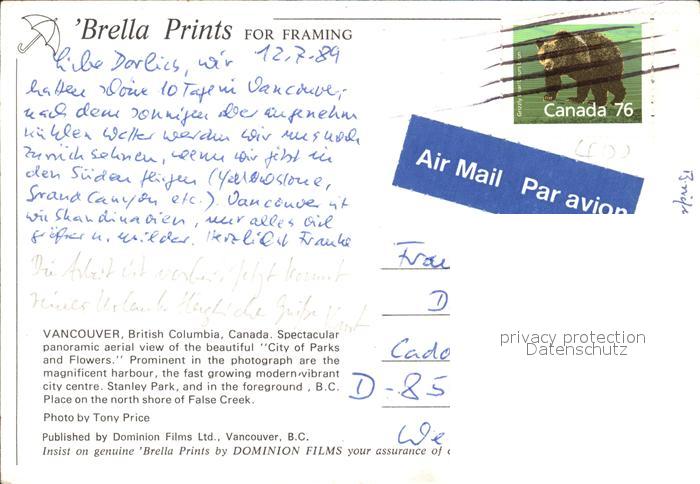 'Brella Prints FOR FRAMING
12.7.89
Liebe Dorlies, wir
hatten schöne 10 Tage in Vancouver,
nach dem sonnigen aber angenehm
kühlen Wetter werden wir uns noch
zurück sehnen, wenn wir jetzt in
den Süden fliegen (Yellowstone,
Grand Canyon etc.). Vancouver ist
wie Skandinavien, nur alles viel
größer u. wilder. Herzlichst Frauke
Die Arbeit ist vorbei, jetzt kommt
reiner Urlaub. Herzliche Grüße
VANCOUVER, British Columbia, Canada. Spectacular
panoramic aerial view of the beautiful "City of Parks
and Flowers." Prominent in the photograph are the
magnificent harbour, the fast growing modern-vibrant
city centre. Stanley Park, and in the foreground , B.C.
Place on the north shore of False Creek.
Photo by Tony Price
Published by Dominion Films Ltd., Vancouver, B.C.
Insist on genuine 'Brella Prints by DOMINION FILMS your assurance of
Canada 76
Air Mail Par avion
Frau
D
Cado
D-85
We
privacy protection
Datenschutz